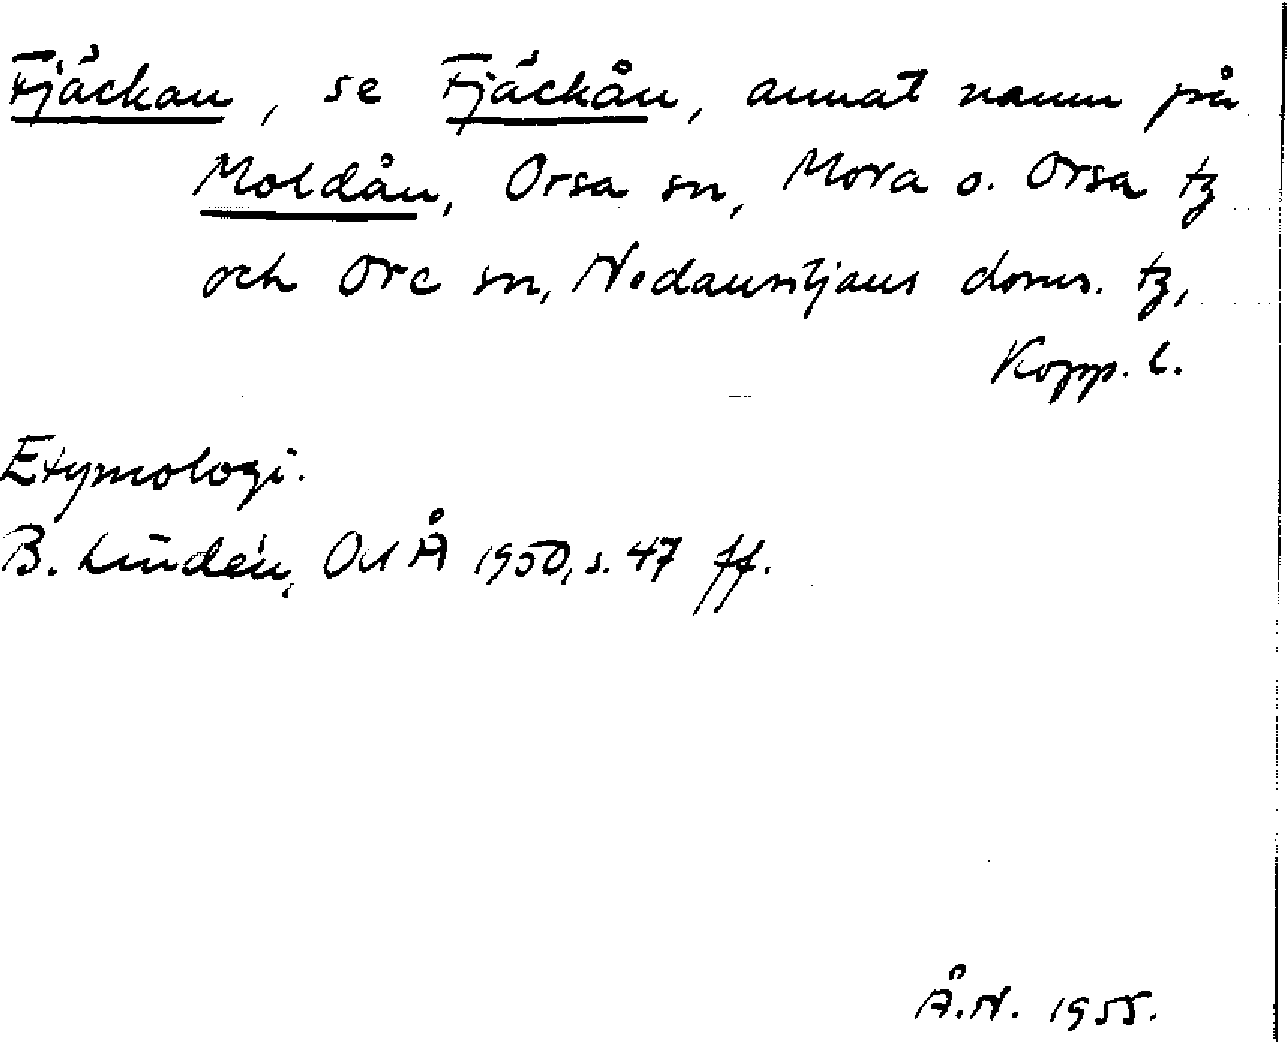 Fjäckan, se Fjäckån, annat namn på
Moldån, Orsa sn, Mora o. Orsa tg
och Ore sn, Nedansiljans doms. tg,
Kopp. l.
Etymologi.
B. Lindén, OUÅ 1950, s. 47 ff.
Å.N. 1955.